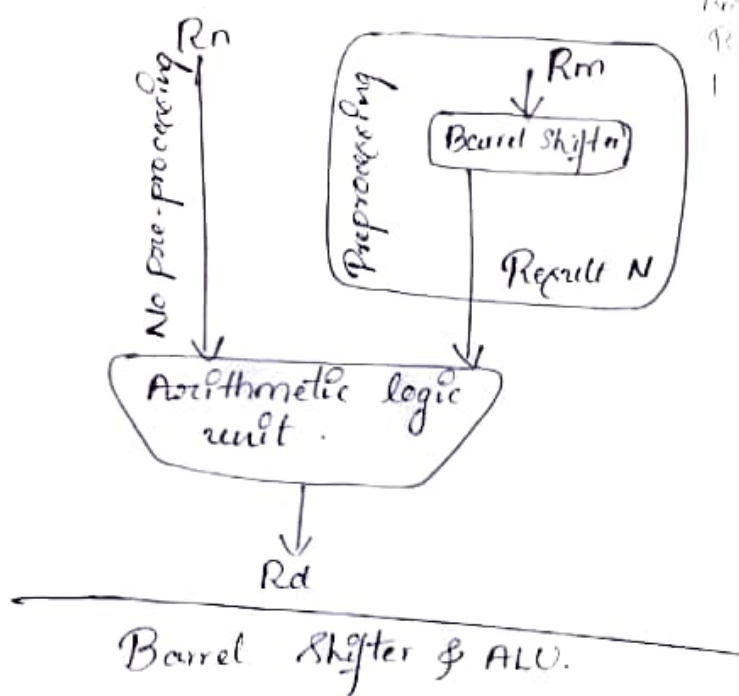 Rn
No pre-processing
Preprocessing
Rm
Barrel Shifter
Result N
Arithmetic logic
unit.
Rd
Barrel Shifter & ALU.